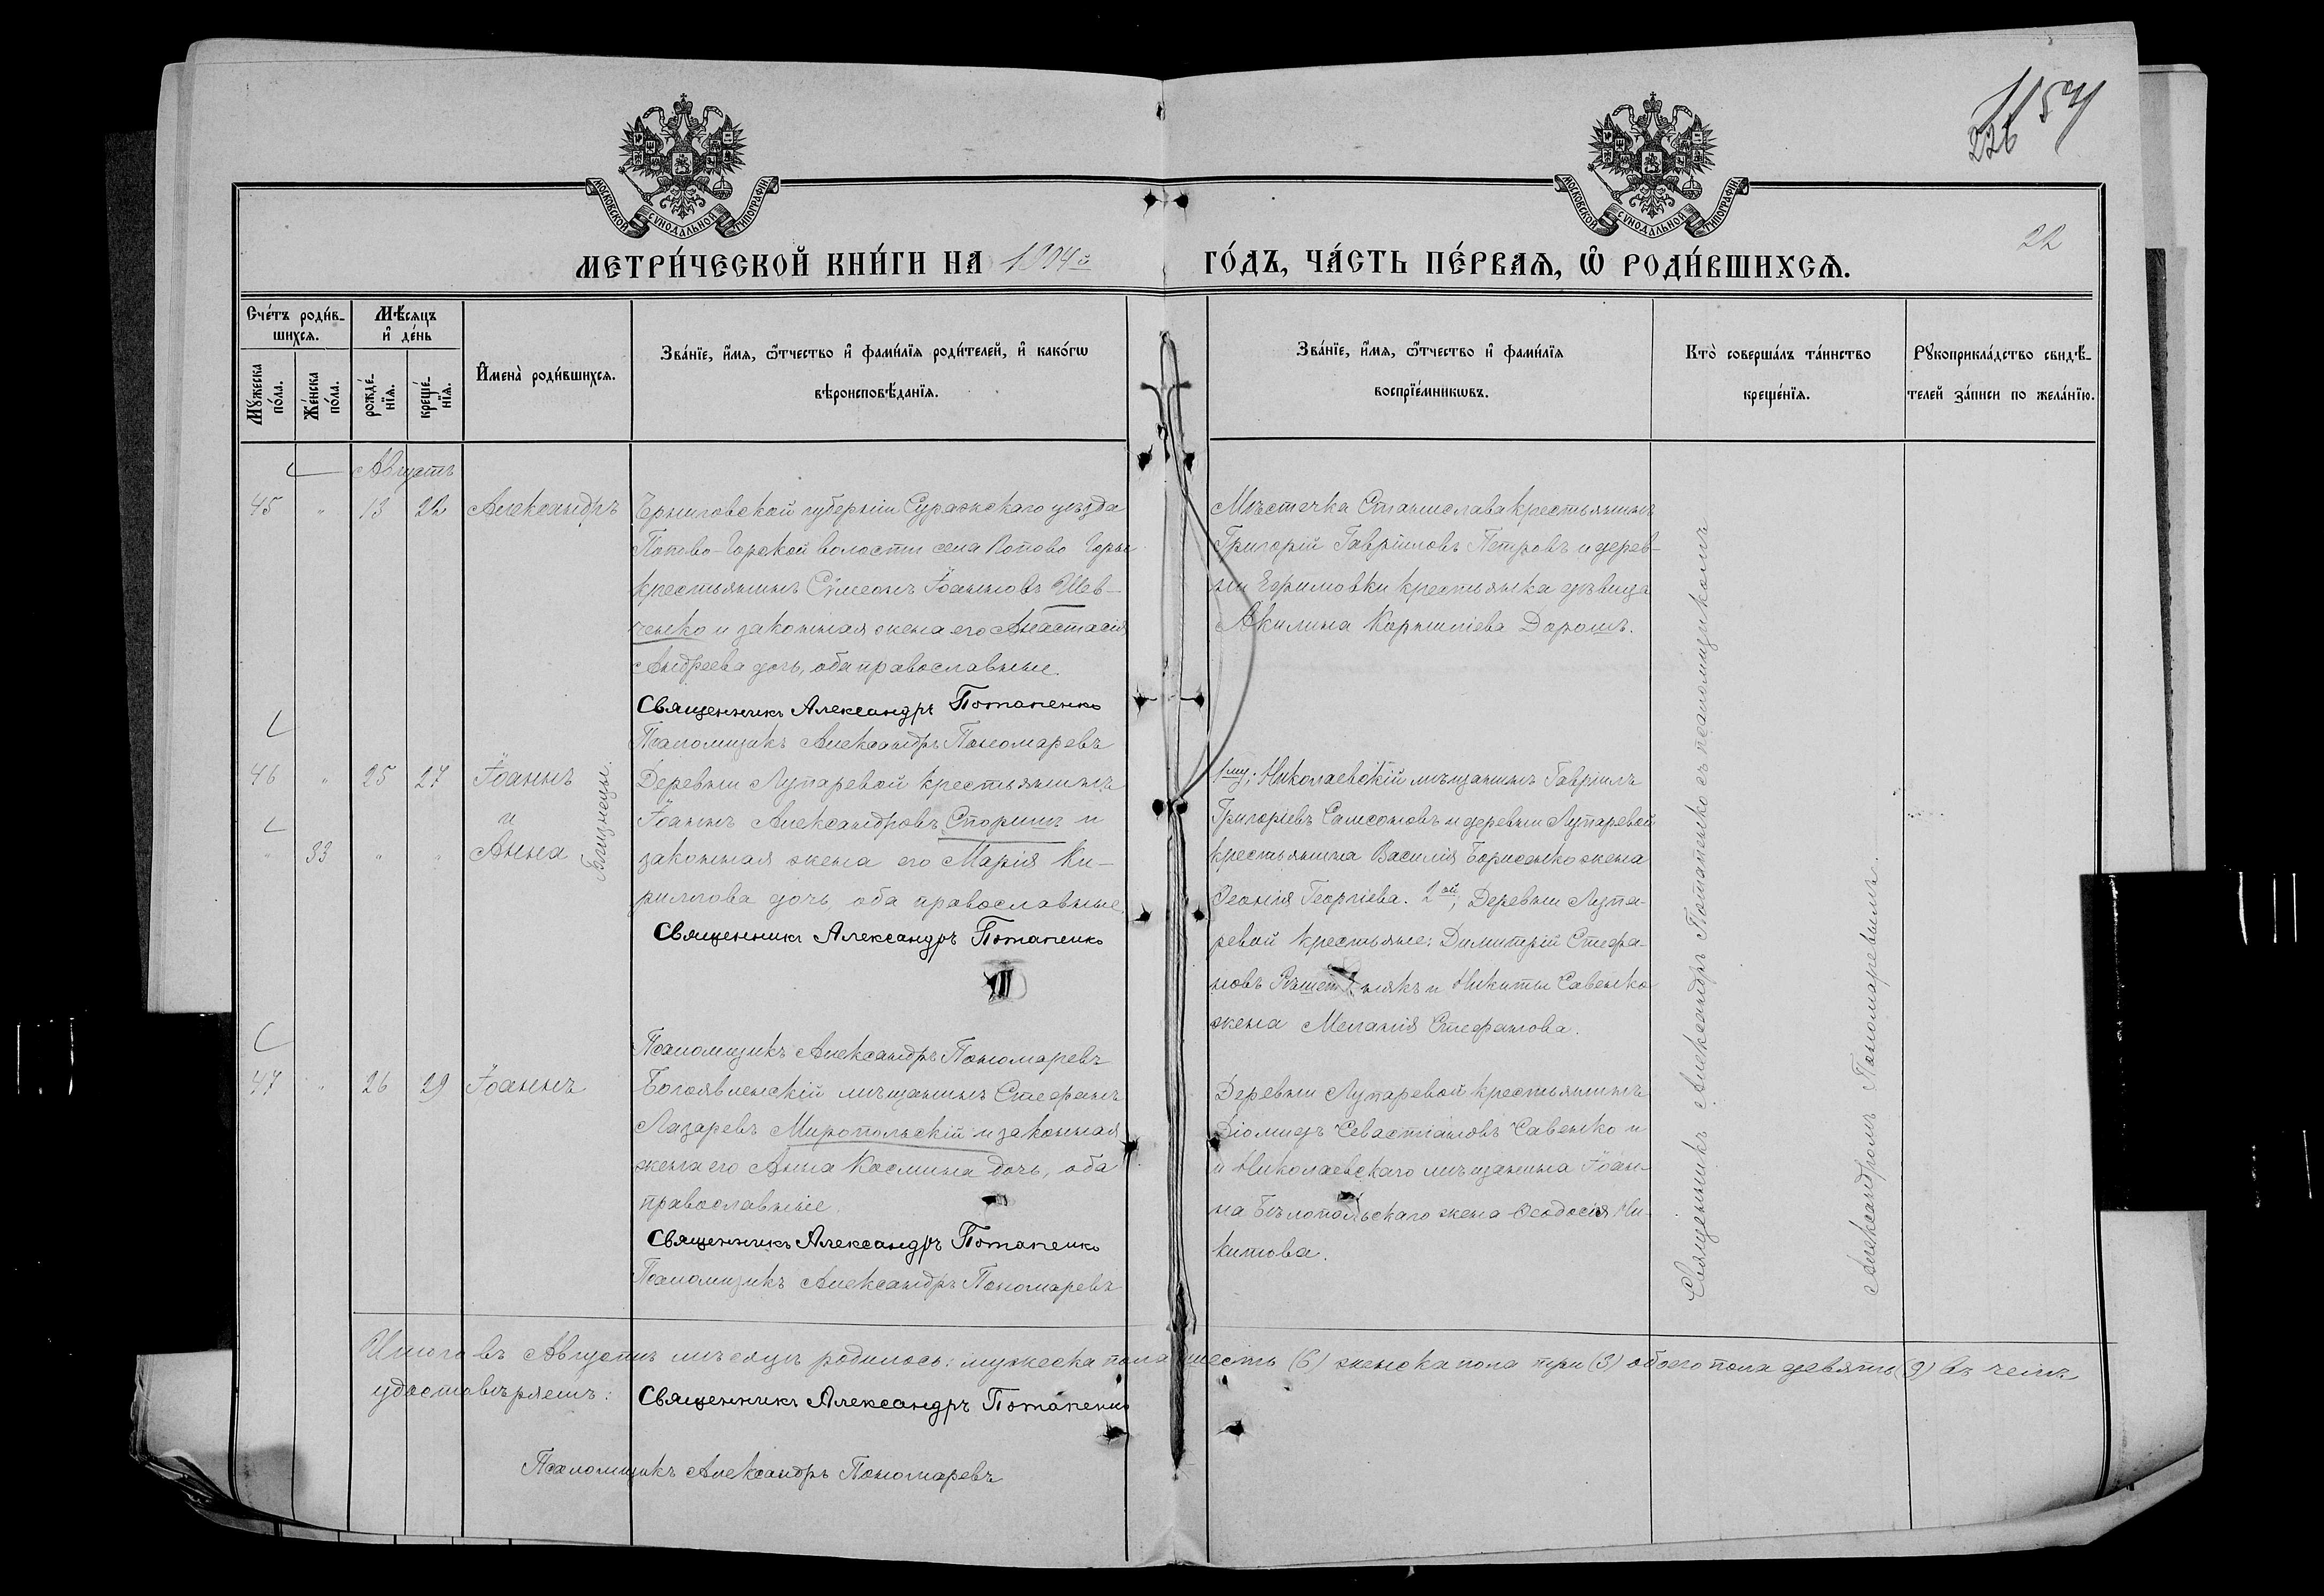 1154
226
МОСКОВСКОЙ СѴНОДАЛЬНОЙ ТИПОГРАФІИ
МОСКОВСКОЙ СѴНОДАЛЬНОЙ ТИПОГРАФІИ
22
МЕТРИ́ЧЕСКОЙ КНИ́ГИ НА 1904й ГО́ДЪ, ЧА́СТЬ ПЕ́РВАЯ, Ѡ҆ РОДИ́ВШИХСЯ.
Сче́тъ роди́в-
шихся.
Мѣ́сяцъ
и҆ де́нь
Мꙋ́жеска
по́ла.
Же́нска
по́ла.
рожде́-
нїя.
креще́-
нїя.
И҆мена̀ роди́вшихся.
Зва́нїе, и҆́мя, ѻ҆́тчество и҆ фами́лїя роди́телей, и҆ како́гѡ
вѣроисповѣ́данїя.
Зва́нїе, и҆́мя, ѻ҆́тчество и҆ фами́лїя
воспрїе́мникѡвъ.
Кто̀ соверша́лъ та́инство
креще́нїя.
Рꙋкоприкла́дство свидѣ́-
телей за́писи по жела́нїю.
Августъ
45 " 13 22 Александръ
Черниговской губерніи Суражскаго уѣзда
Попово-Горской волости села Попово Горы
крестьянинъ Сѵмеонъ Іоанновъ Шев-
ченко и законная жена его Анастасія
Андреева дочь, оба православные.
Священникъ Александръ Потапенко
Псаломщикъ Александръ Пономаревъ
Мѣстечка Станислава крестьянинъ
Григорій Гавріиловъ Петровъ и дерев-
ни Ефимовки крестьянка дѣвица
Акилина Корниліева Дорошъ.
46 " 25 27 Іоаннъ
и
" 33 " " Анна
Близнецы.
Деревни Лупаревой крестьянинъ
Іоаннъ Александровъ Спориш и
законная жена его Марія Ки-
риллова дочь, оба православные.
Священникъ Александръ Потапенко
Псаломщикъ Александръ Пономаревъ
1му; Николаевскій мѣщанинъ Гавріилъ
Григоріевъ Самсоновъ и деревни Лупаревой
крестьянина Василія Борисенко жена
Ѳеонія Георгіева. 2ой; Деревни Лупа-
ревой крестьяне: Димитрій Стефа-
новъ Рѣшетнякъ и Никиты Савенко
жена Меланія Стефанова.
47 " 26 29 Іоаннъ
Богоявленскій мѣщанинъ Стефанъ
Лазаревъ Миропольскій и законная
жена его Анна Космина дочь, оба
православные.
Священникъ Александръ Потапенко
Псаломщикъ Александръ Пономаревъ
Деревни Лупаревой крестьянинъ
Діомидъ Севастіановъ Савенко и
и Николаевскаго мѣщанина Іоан-
на Бѣлопольскаго жена Ѳеодосія Ни-
китова.
Священникъ Александръ Потапенко съ псаломщикомъ
Александромъ Пономаревымъ.
Итого въ Августѣ мѣсяцѣ родилось: мужеска пола шесть (6) женска пола три (3) обоего пола девять (9) въ чемъ
удостовѣряетъ: Священникъ Александръ Потапенко
Псаломщикъ Александръ Пономаревъ